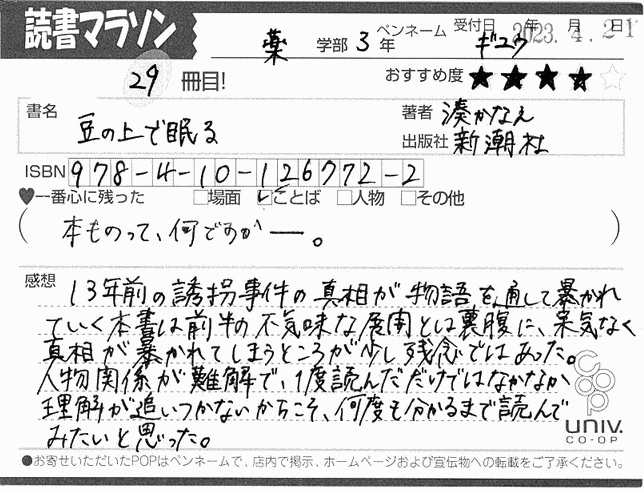 読書マラソン
薬 学部 3 年 ペンネーム ギユウ 受付日 年 月 日 2023.4.21
29 冊目! おすすめ度 ★★★★☆
書名 豆の上で眠る
著者 湊かなえ
出版社 新潮社
ISBN 978-4-10-126772-2
♥一番心に残った □場面 ☑ことば □人物 □その他
( 本ものって、何ですか―。 )
感想
13年前の誘拐事件の真相が物語を通して暴かれ
ていく本書は前半の不気味な展開とは裏腹に、呆気なく
真相が暴かれてしまうところが少し残念ではあった。
人物関係が難解で、1度読んだだけではなかなか
理解が追いつかないからこそ、何度も分かるまで読んで
みたいと思った。
coop
univ.
CO-OP
●お寄せいただいたPOPはペンネームで、店内で掲示、ホームページおよび宣伝物への転載をご了承ください。